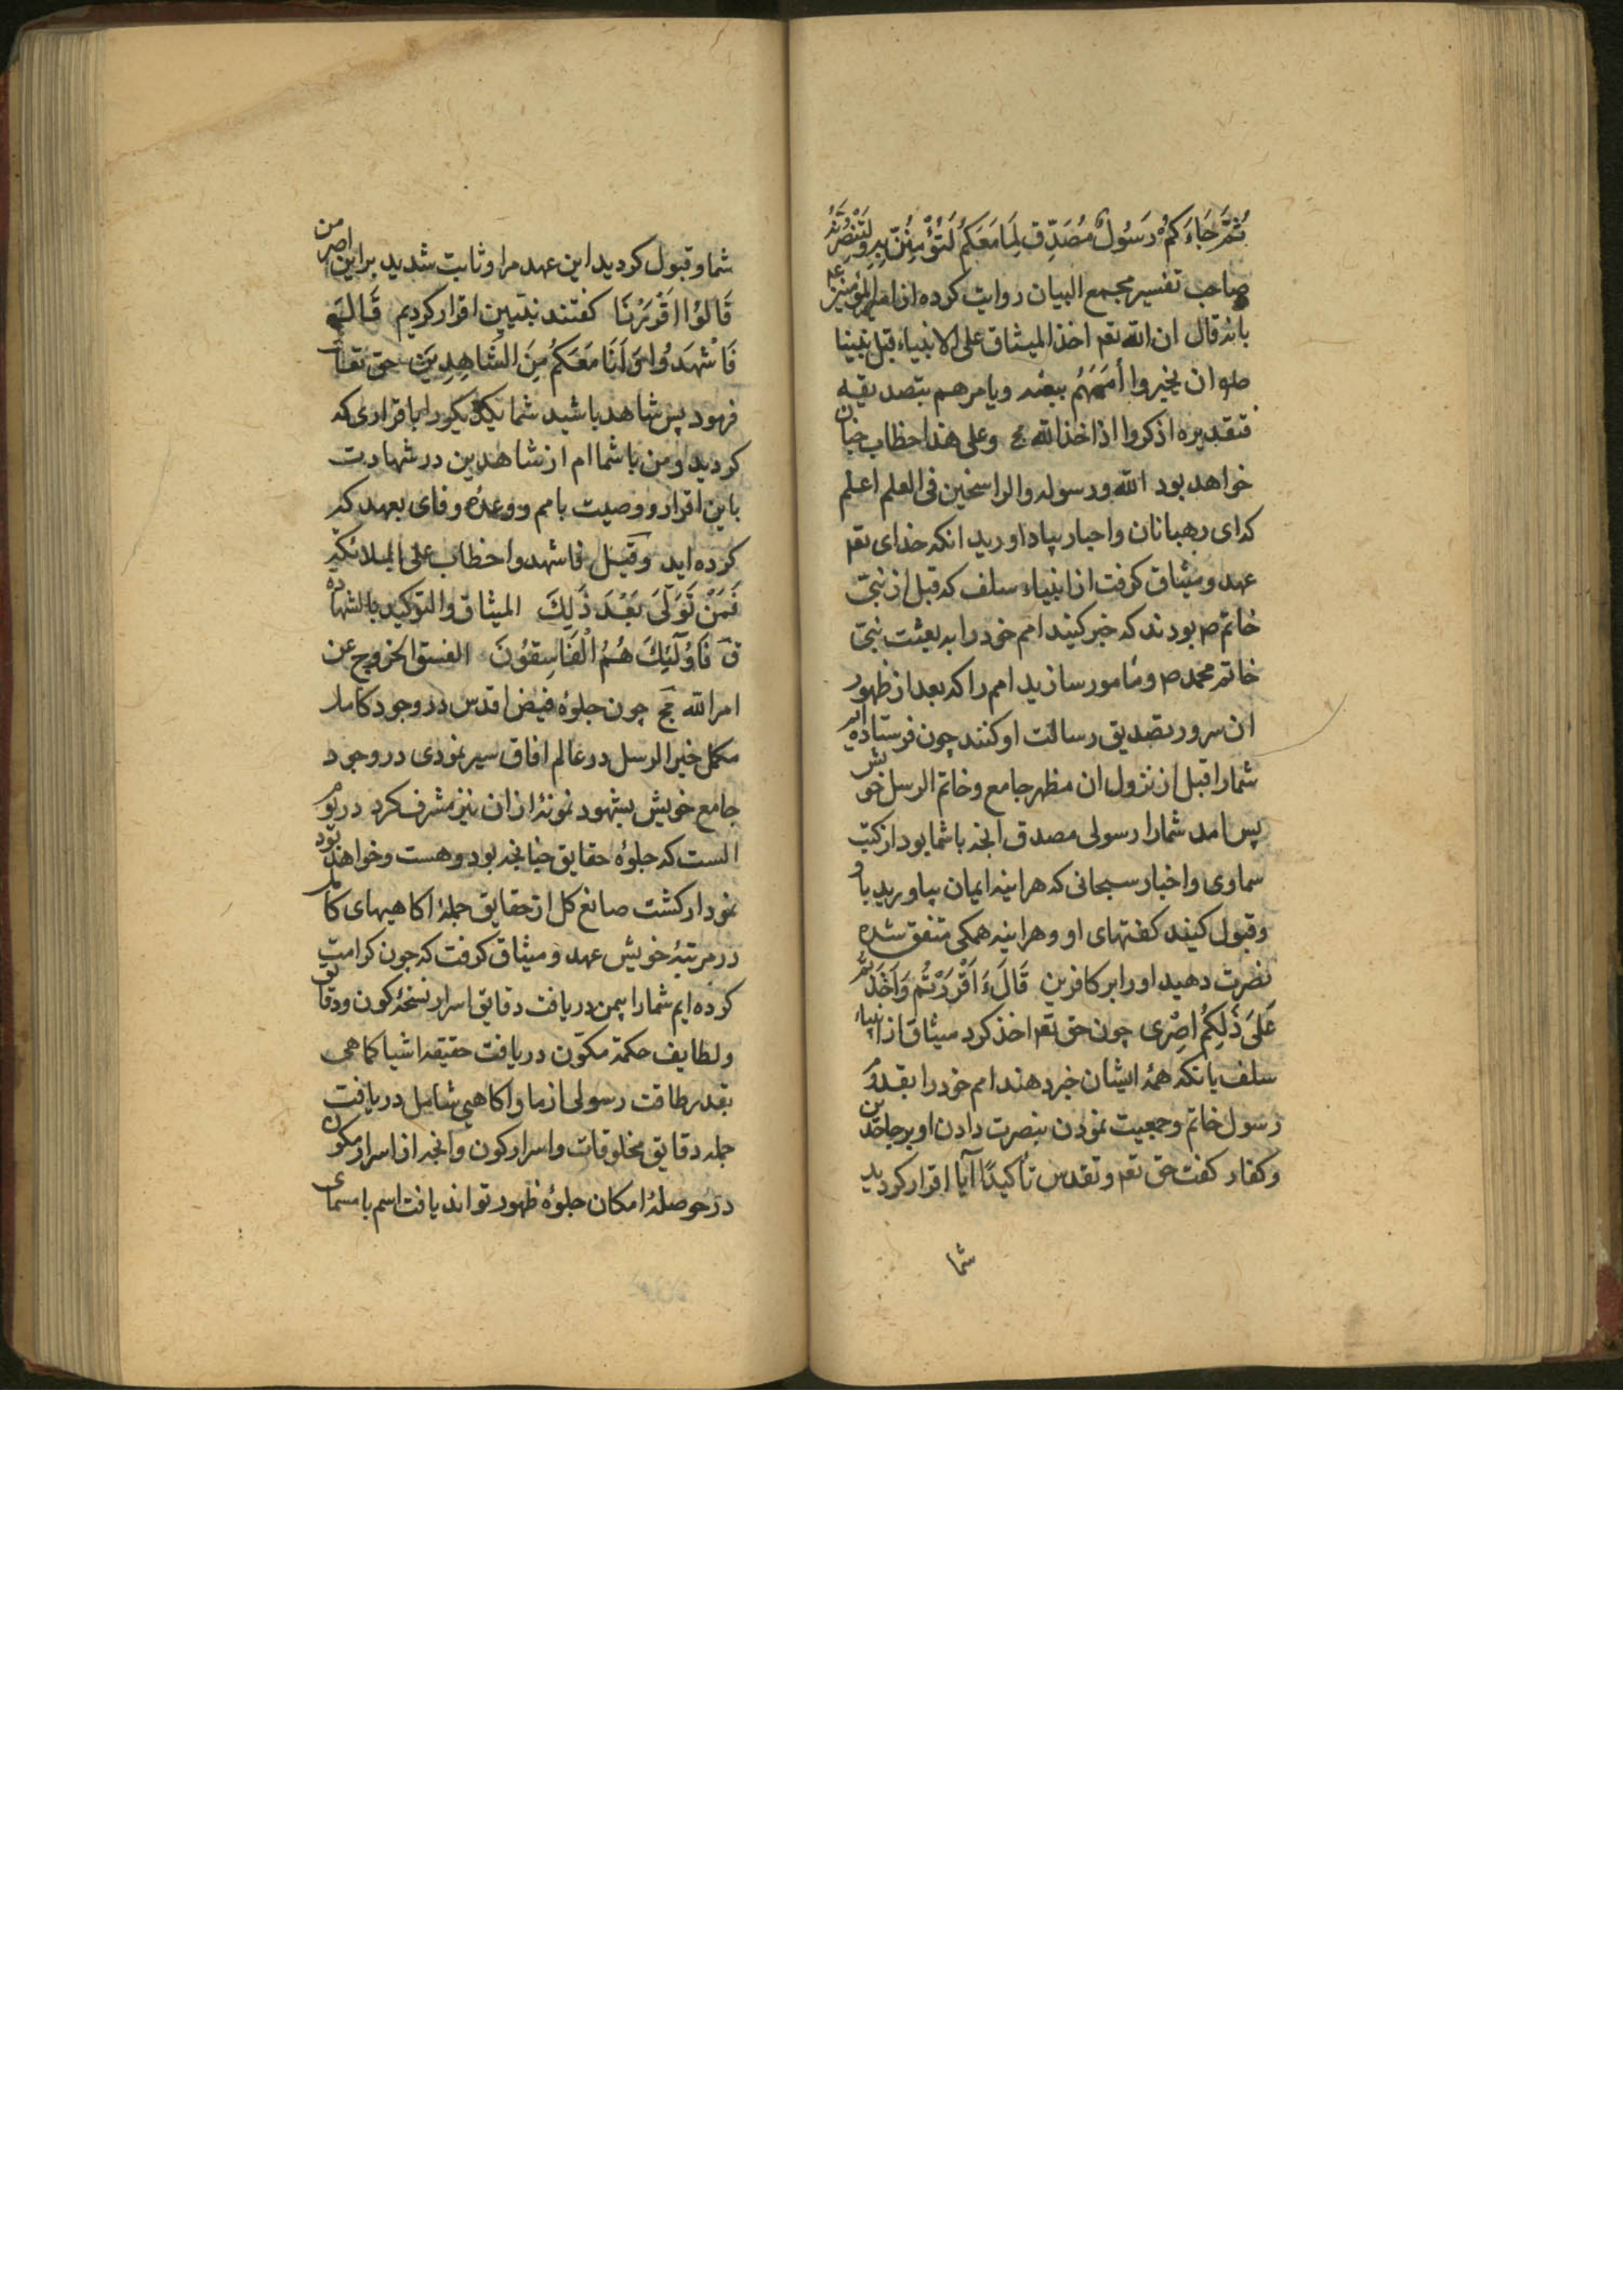 ثُمَّ جَاءَكُمْ رَسُولٌ مُصَدِّق لِمَا مَعَكُمْ لَتُؤْمِنُنَّ بِهِ وَلَتَنْصُرُنَّهُ
صاحب تفسیر مجمع البیان روایت کرده از امیر المؤمنین ع
بانه قال ان الله تعم اخذ المیثاق علی الانبیاء قبل نبینا
ان یخبروا أممهم ببعثه ویامرهم بتصدیقه
فتقدیره اذکروا اذ اخذ الله وعلی هذا خطاب چنان
خواهد بود الله ورسوله والراسخین فی العلم اعلم
که ای رهبانان واحبار بیاد اورید انکه خدای تعم
عهد ومیثاق کرفت از انبیاء سلف که قبل از نبی
خاتم ص بودند که خبر کنید امم خود را به بعثت نبی
خاتم محمد ص ومامور سازید امم را که بعد از ظهور
ان سرور تصدیق رسالت او کنند چون فرستاده ایم
شمارا قبل از نزول ان مظهر جامع وخاتم الرسل خویش
پس امد شمارا رسولی مصدق انچه باشما بود از کتب
سماوی واخبار سبحانی که هراینه ایمان بیاورید باو
وقبول کنید کفتهای او وهراینه همکی متفق شده
نصرت دهید اورا بر کافرین قَالَ ءَاَقْرَرْتُمْ وَاَخَذْتُمْ
عَلَىٰ ذَٰلِكُمْ اِصْرِی چون حق تعم اخذ کرد میثاق از انبیاء
سلف بانکه همهٔ ایشان خبر دهند امم خود را بقدوم
رسول خاتم وجمعیت نمودن بنصرت دادن او بر جاحدین
وکفار کفت حق تعم وتقدس تأکیدًا آیا اقرار کردید
شما
شما وقبول کردید این عهد مرا وثابت شدید براین اصر من
قَالُوا اَقْرَرْنَا کفتند نبیین اقرار کردیم قَالَ
فَاشْهَدُوا وَاَنَا مَعَكُمْ مِنَ الشَّاهِدِينَ حق تعالی
فرمود پس شاهد باشید شما یکدیکر را باقراری که
کردید ومن باشما ام از شاهدین در شهادت
باین اقرار ووصیت بامم ووعده وفای بعهد که
کرده اید وقیل فاشهدوا خطاب علی الملائکة
فَمَنْ تَوَلَّىٰ بَعْدَ ذَٰلِكَ المیثاق والتوکید بالشهادة
ق فَاُولَٰئِكَ هُمُ الْفَاسِقُونَ الفسق الخروج عن
امر الله چون جلوهٔ فیض اقدس در وجود کامل
مکمل خیر الرسل در عالم افاق سیر نمودی در وجود
جامع خویش بشهود نمونهٔ از ان نیز مشرف کرد در یوم
الست که جلوهٔ حقایق چنانچه بود وهست وخواهد بود
نمودار کشت صانع کل از حقایق جملهٔ اکاهیهای کامل
در مرتبهٔ خویش عهد ومیثاق کرفت که چون کرامت
کرده ایم شمارا بمن دریافت دقایق اسرار نسخهٔ کون ودقائق
ولطایف حکمة مکوّن دریافت حقیقه اشیا کماهی
بقدر طاقت رسولی از ما واکاهی شامل دریافت
جمله دقایق مخلوقات واسرار کون وانچه از اسرار مکون
در حوصلهٔ امکان جلوهٔ ظهور تواند یافت اسم بامسمای